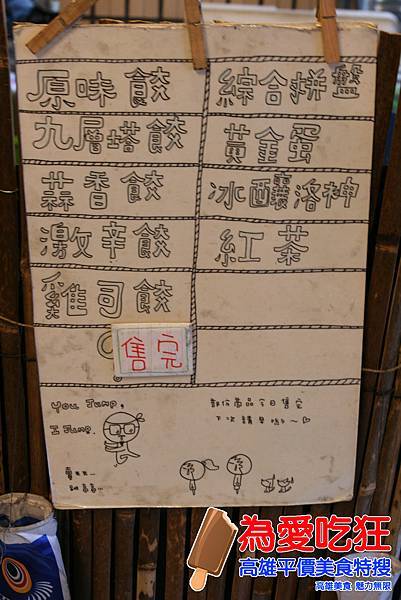 原味餃
九層塔餃
蒜香餃
激辛餃
雞司餃
綜合拼盤
黃金蛋
冰釀洛神
紅茶
售完
YOU JUMP,
I JUMP.
部份商品今日售完
下次請早喲~
為愛吃狂
高雄平價美食特搜
高雄美食 魅力無限